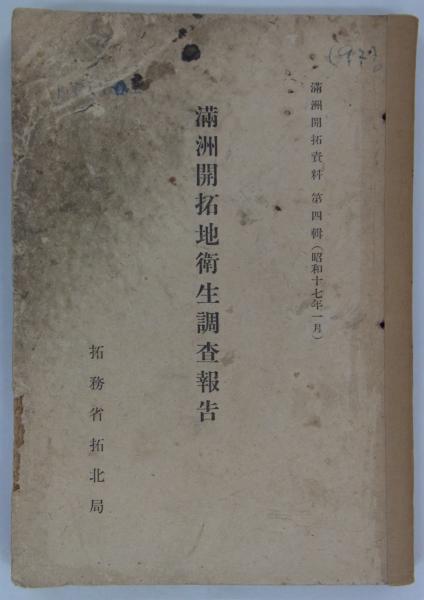 滿洲開拓資料 第四輯(昭和十七年一月)
滿洲開拓地衛生調査報告
拓務省拓北局